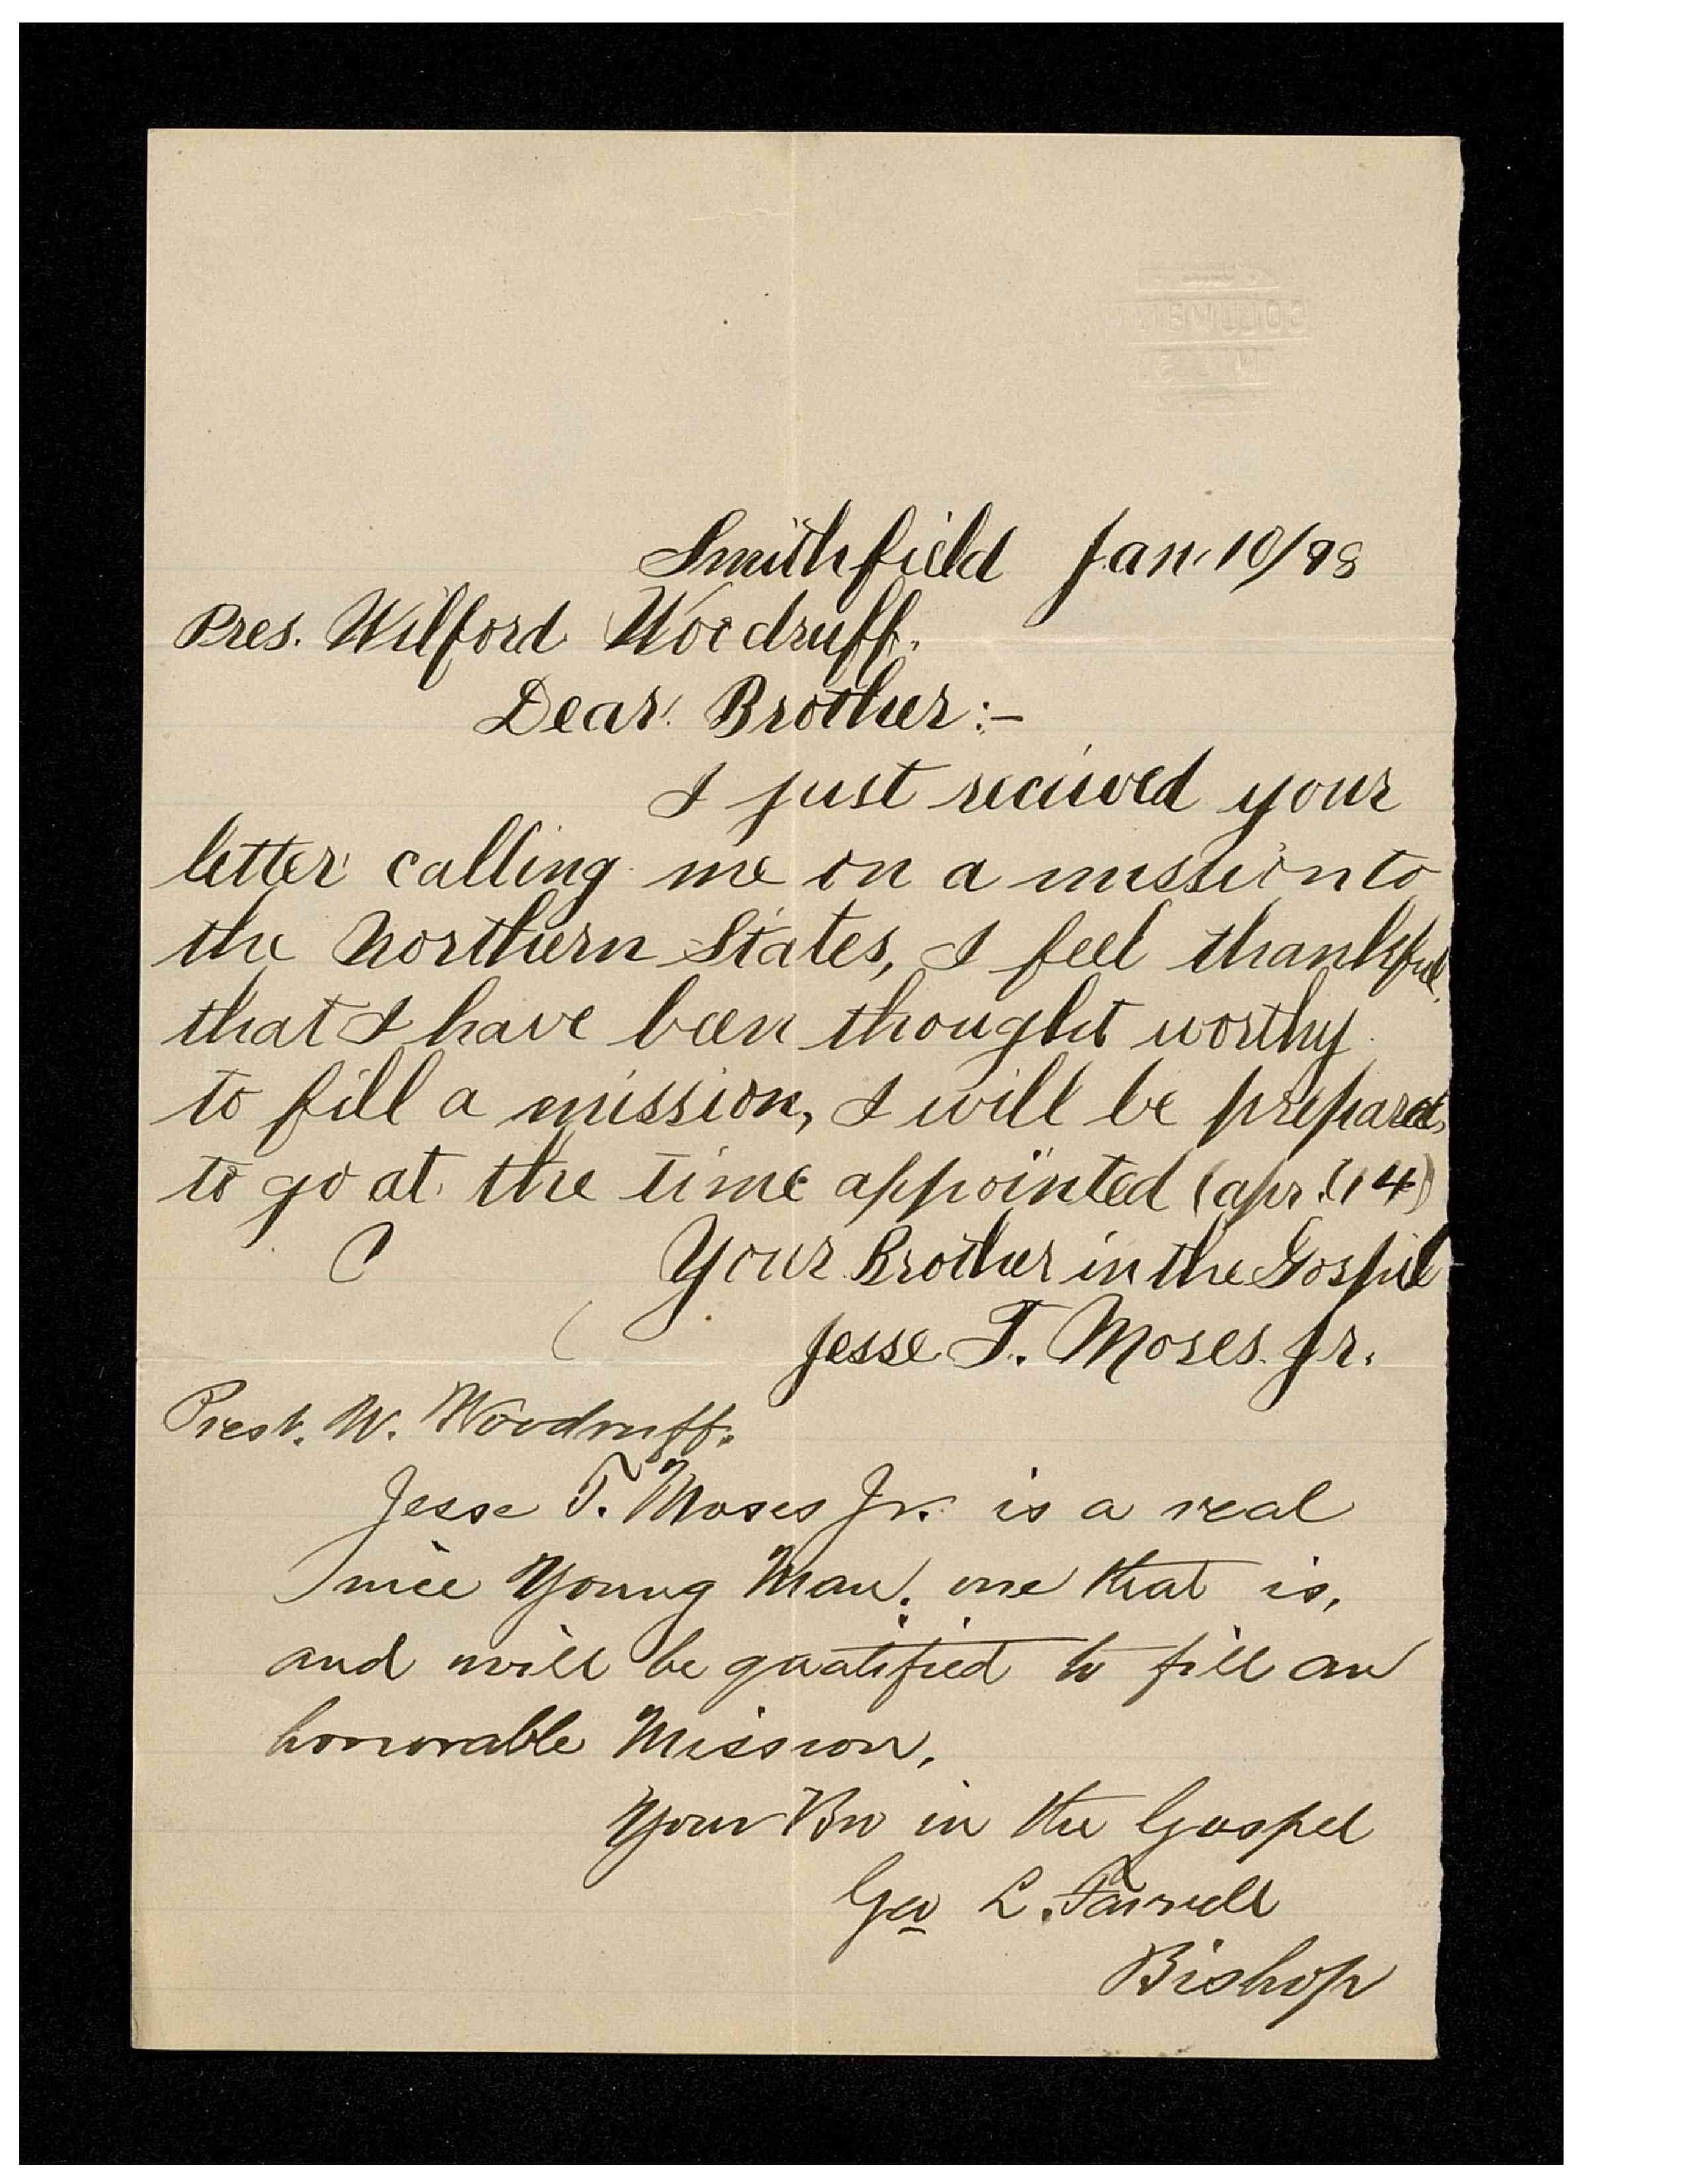 Smithfield Jan. 10/98
Pres. Wilford Woodruff.
Dear Brother:-
I just recieved your
letter calling me on a mission to
the Northern States, I feel thankful
that I have been thought worthy
to fill a mission, I will be prepared
to go at the time appointed (apr. 14)
Your Brother in the Gospel
Jesse T. Moses Jr.
Prest. W. Woodruff.
Jesse T. Moses Jr. is a real
nice Young Man. one that is,
and will be quatified to fill an
honorable Mission,
Your Bro in the Gospel
Geo L. Farrell
Bishop